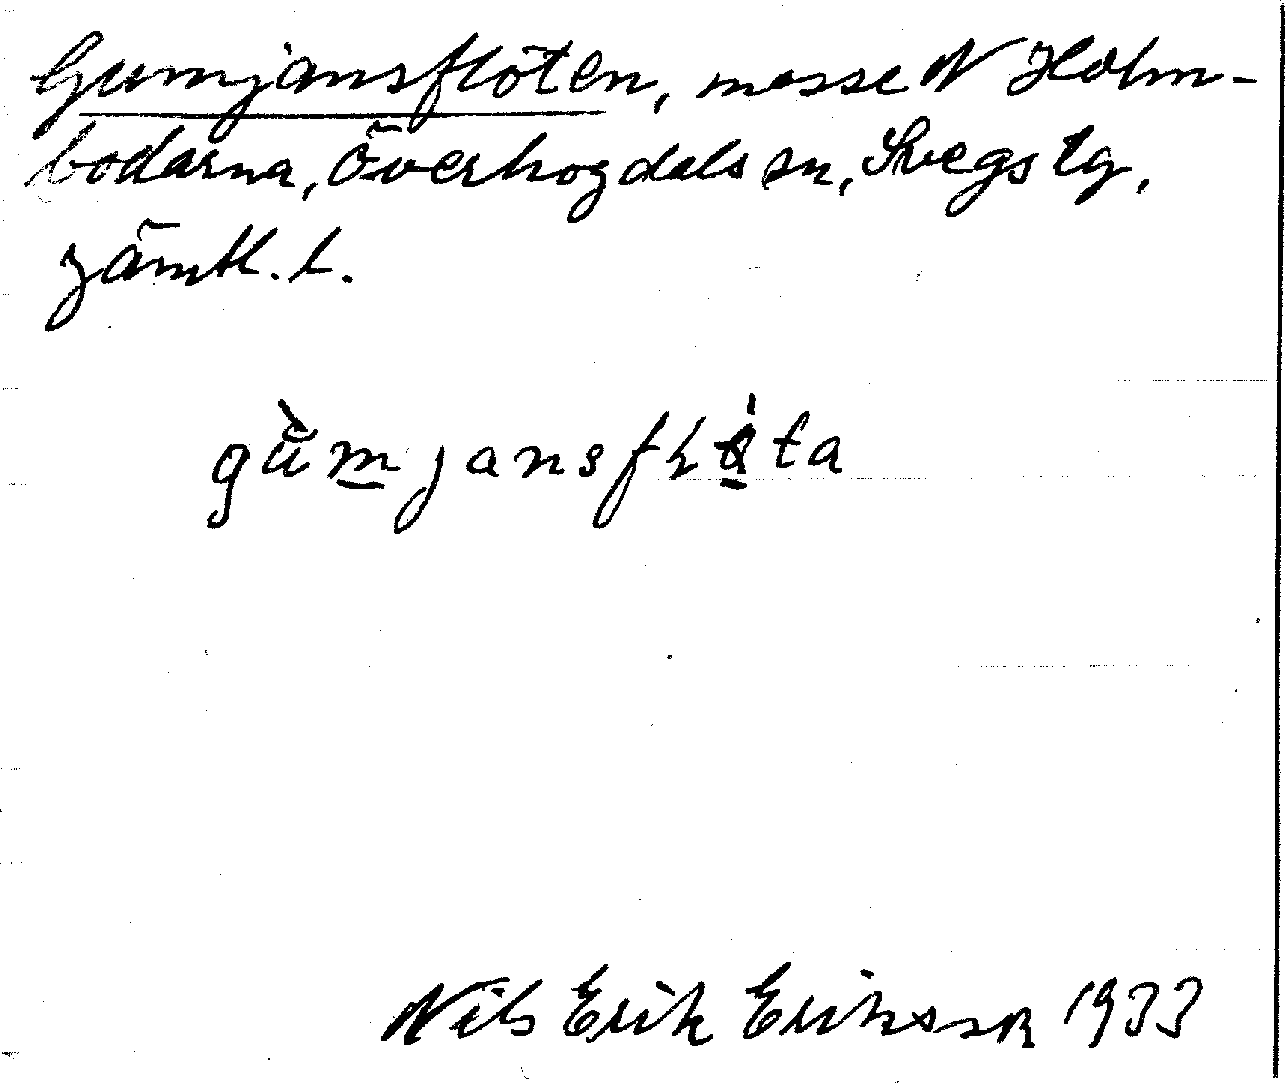 Gumjansflöten, mosse N Holm-
bodarna, Överhogdals sn, Svegs tg,
Jämtl. l.
gùmjansflǿta
Nils Erik Eriksson 1933